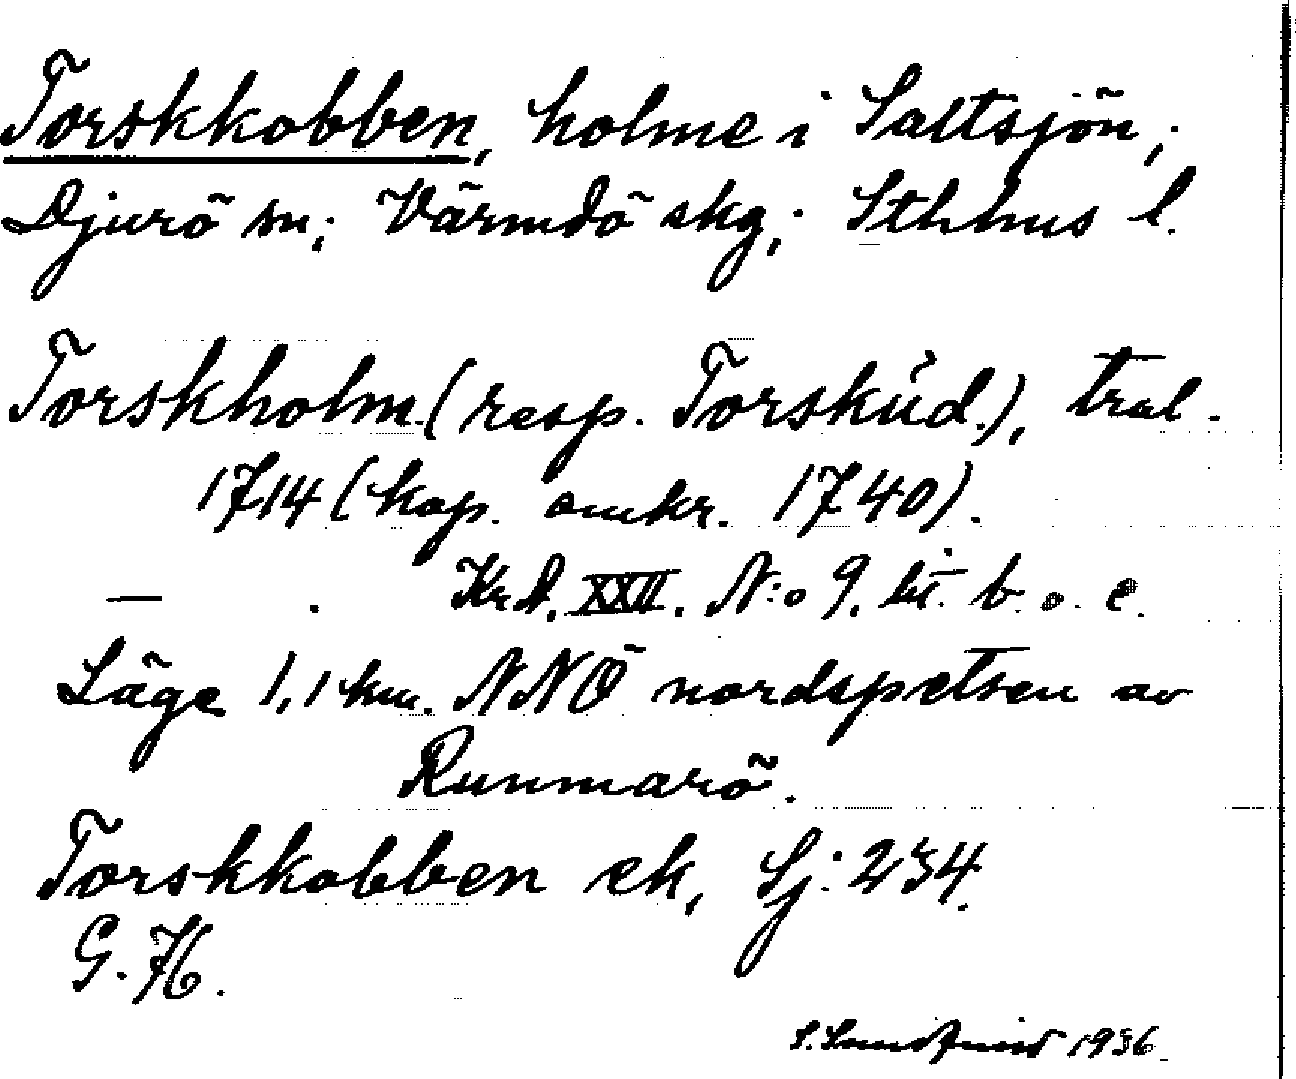 Torskkobben, holme i Saltsjön;
Djurö sn; Värmdö skg; Sthlms l.
Torskholm (resp. Torskūd.), tral.
1714 (kop. omkr. 1740).
— . KrA. XXII. N:o 9. lit. b. o. e.
Läge 1,1 km. NNÖ nordspetsen av
Runmarö.
Torskkobben ek, Sj: 234.
G. H.
1936.